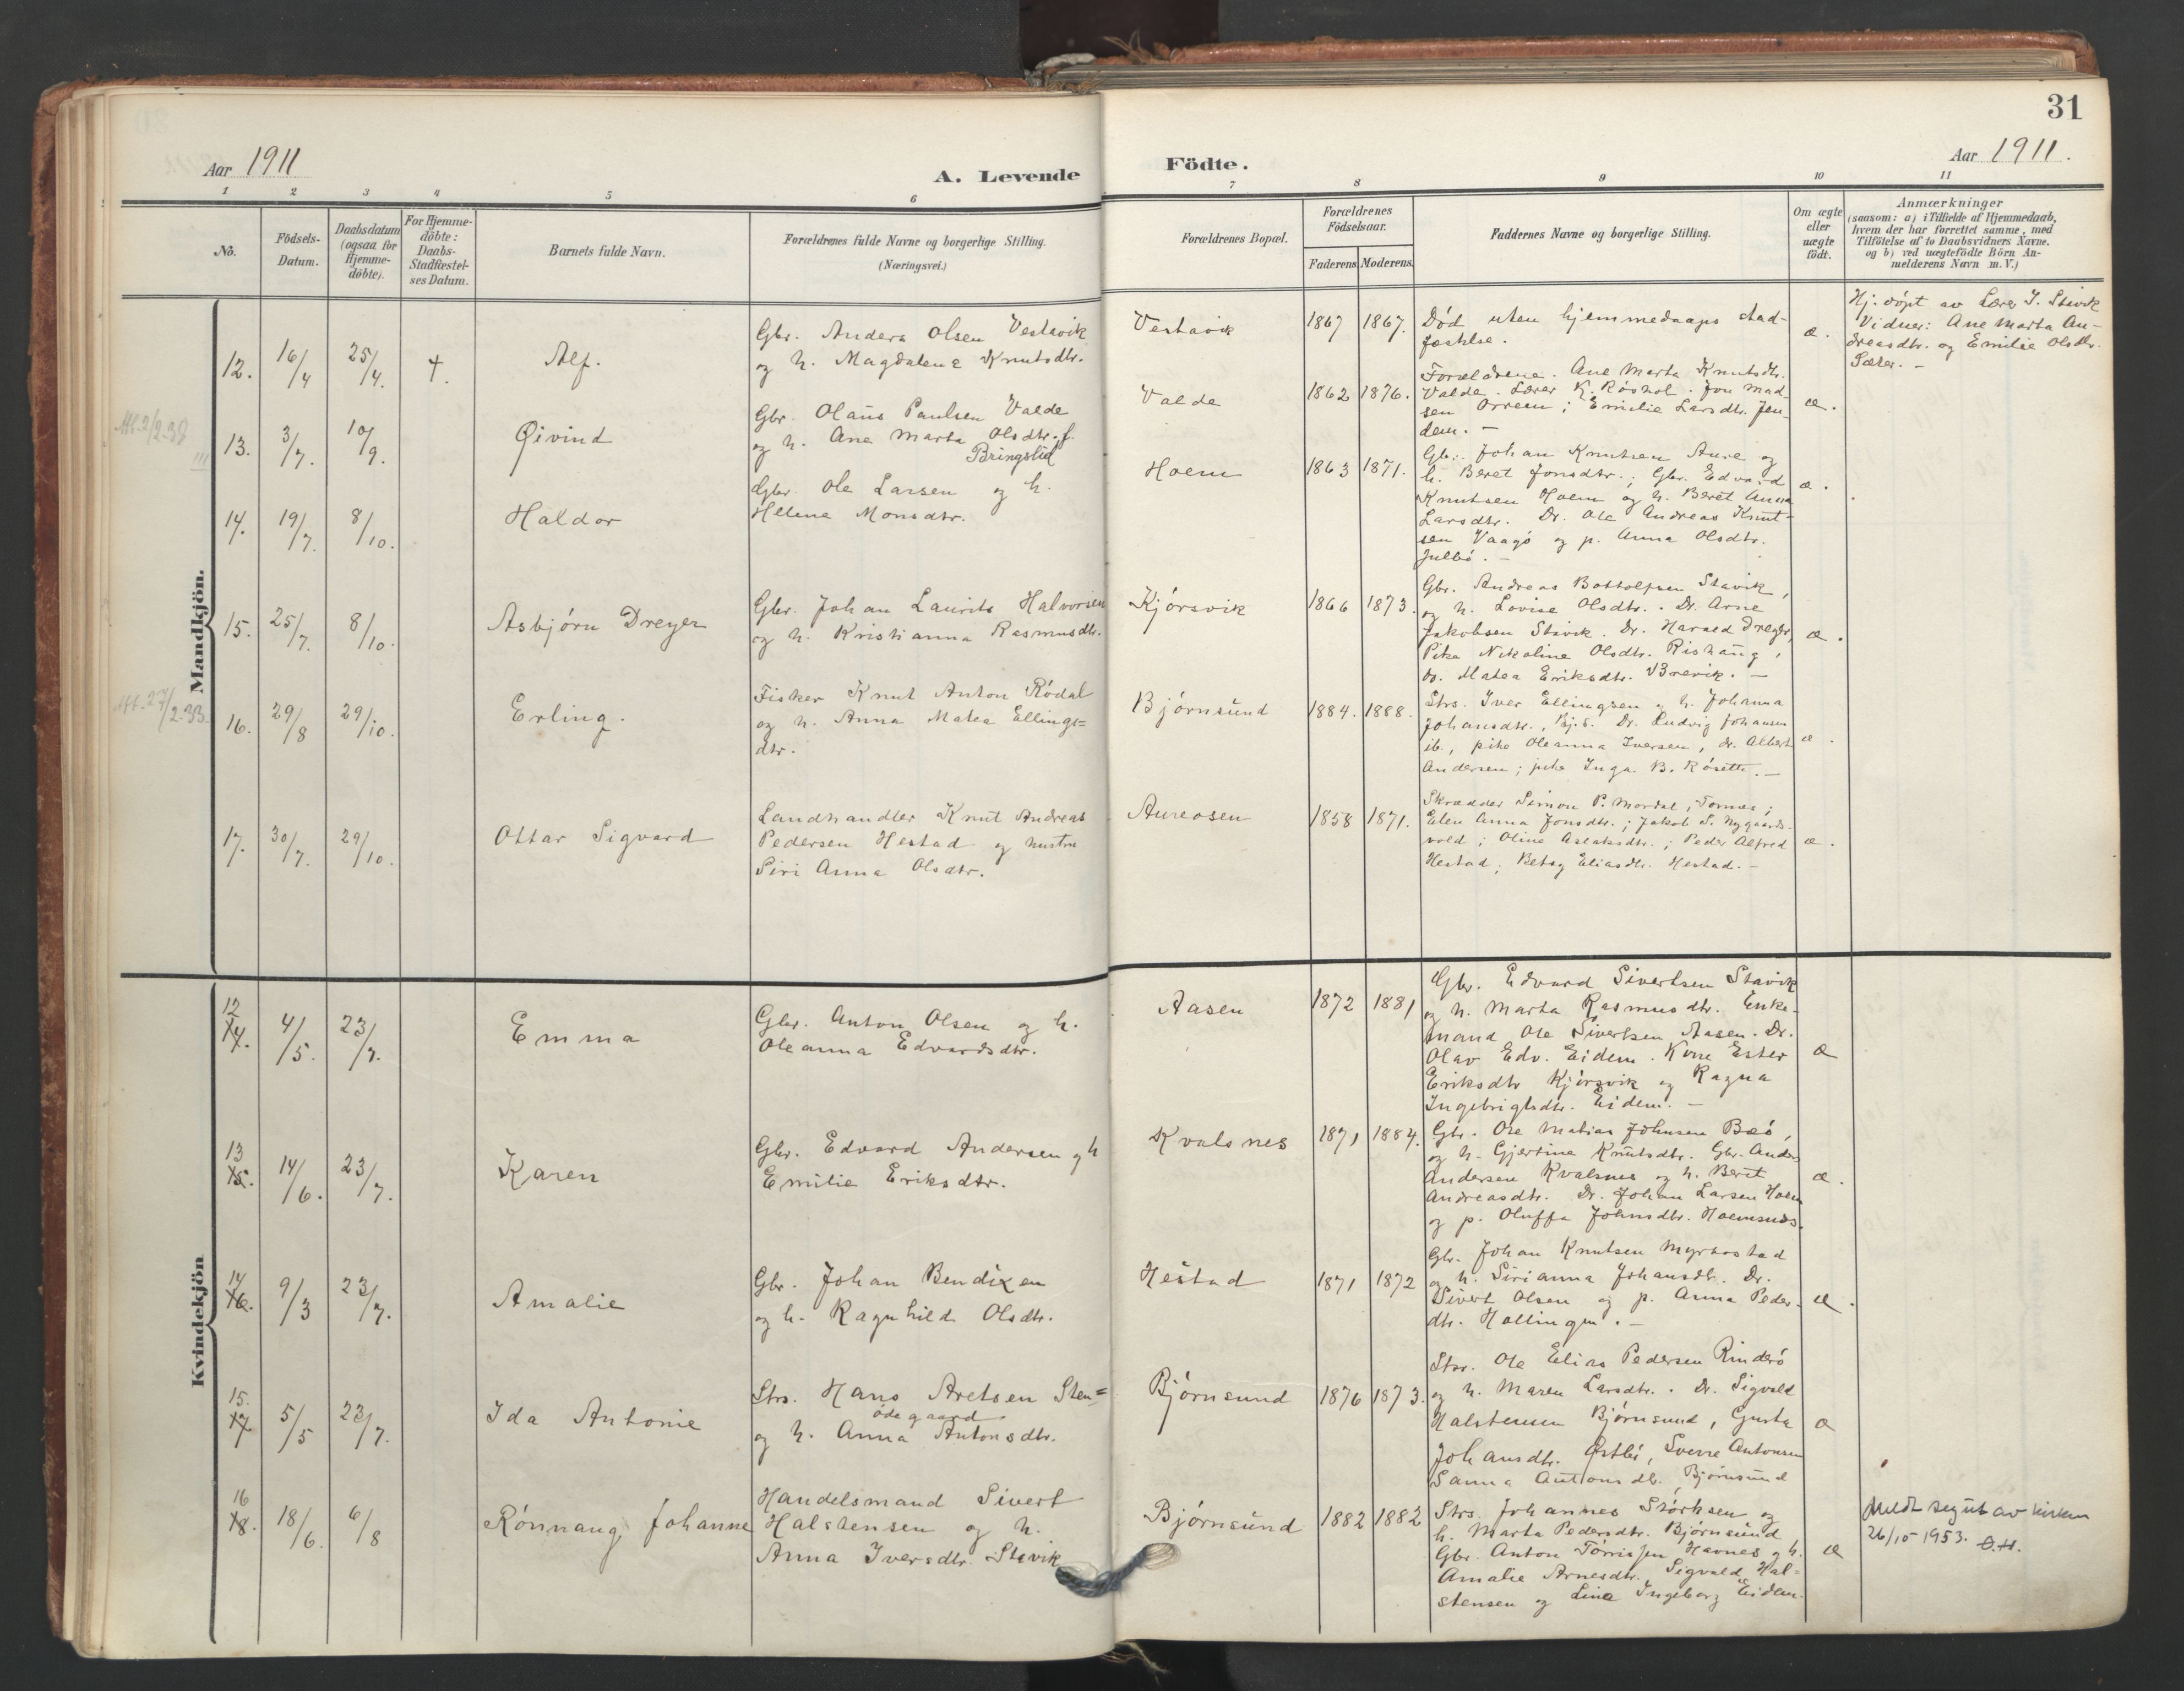 31
Aar 1911
A. Levende
Födte.
Aar 1911.
1 2 3 4 5 6 7 8 9 10 11
No.
Födsels-
Datum.
Daabsdatum
(ogsaa for
Hjemme-
döbte).
For Hjemme-
döbte:
Daabs-
Stadfæstel-
ses Datum.
Barnets fulde Navn.
Forældrenes fulde Navne og borgerlige Stilling.
(Næringsvei.)
Forældrenes Bopæl.
Forældrenes
Födselsaar.
Faderens Moderens
Faddernes Navne og borgerlige Stilling.
Om ægte
eller
uægte
födt.
Anmærkninger
(saasom: a) i Tilfælde af Hjemmedaab,
hvem der har forrettet samme, med
Tilföielse af to Daabsvidners Navne.
og b) ved uægtefödte Börn An-
melderens Navn m. V.)
Mandkjön.
12. 16/4 25/4. +. Alf.
Gbr. Anders Olsen Vestavik
og h. Magdalena Knutsdtr.
Vestavik 1867 1867.
Död uten hjemmedaaps stad-
fæstelse.
æ.
Hj. döpt av Lærer J. Stavik
Vidner: Ane Marta An-
dreasdtr. og Emilie Olsdtr.
Sæter. -
13. 3/7. 10/9. Øivind
Gbr. Olaus Paulsen Valde
og h. Ane Marta Olsdtr. f.
Bringslid
Valde 1862 1876.
Forældrene. Ane Marta Knutsdtr.
Valde. Lærer K. Röshol. Jon Mad-
sen Orreem; Emilie Larsdtr. Jen-
dem. -
æ.
14. 19/7. 8/10. Haldor
Gbr. Ole Larsen og h.
Helene Monsdtr.
Hoem 1863 1871.
Gbr. Johan Knutsen Aure og
h. Beret Jonsdtr.; Gbr. Edvard
Knutsen Hoem og h. Beret Anna
Larsdtr. Dr. Ole Andreas Knut-
sen Vaagö og p. Anna Olsdtr.
Julbö. -
æ.
15. 25/7. 8/10. Asbjörn Dreyer
Gbr. Johan Laurits Halvorsen
og h. Kristianna Rasmusdtr.
Kjörsvik 1866 1873.
Gbr. Andreas Bottolfsen Stavik,
og h. Lovise Olsdtr. Dr. Arne
Jakobsen Stavik. Dr. Harald Dreyer,
Pike Nikoline Olsdtr. Rishaug,
do. Matea Eriksdtr. Brevik. -
æ.
16. 29/8 29/10. Erling.
Fisker Knut Anton Rödal
og h. Anna Matea Ellings=
dtr.
Björnsund 1884. 1888.
Strs. Iver Ellingsen og h. Johanna
Johansdtr., Bj.s. Dr. Ludvig Johansen
ib., pike Oleanna Iversen, dr. Albert
Andersen; pike Inga B. Rösette. -
æ.
17. 30/7. 29/10. Ottar Sigvard
Landhandler Knut Andreas
Pedersen Hestad og hustru
Siri Anna Olsdtr.
Aureosen 1858 1871.
Skrædder Simon P. Mordal, Tornes;
Elen Anna Jonsdtr.; Jakob S. Nygaards-
vold; Oline Aslaksdtr.; Peder Alfred
Hestad; Betsy Eliasdtr. Hestad. -
æ.
Kvindekjön
12
14. 4/5. 23/7. Emma
Gbr. Anton Olsen og h.
Oleanna Edvardsdtr.
Aasen 1872 1881
Gbr. Edvard Sivertsen Stavik
og h. Marta Rasmusdtr. Enke-
mand Ole Sivertsen Aasen. Dr.
Olav Edv. Eidem. Kone Ester
Eriksdtr Kjörsvik og Ragna
Ingebrigtsdtr. Eidem. -
æ
13
15. 14/6. 23/7. Karen
Gbr. Edvard Andersen og h
Emilie Eriksdtr.
Kvalsnes 1871 1884.
Gbr. Ole Matias Johnsen Bæö,
og h. Gjertine Knutsdtr. Gbr. Anders
Andersen Kvalsnes og h. Berit
Andreasdtr. Dr. Johan Larsen Hoem
og p. Oluffa Johnsdtr. Hoemsnes.
æ.
14
16. 9/3 23/7. Amalie
Gbr. Johan Bendixen
og h. Ragnhild Olsdtr.
Hestad 1871 1872
Gbr. Johan Knutsen Myrbostad
og h. Sirianna Johansdtr. Dr.
Sivert Olsen og p. Anna Peder-
dtr. Hollingen. -
æ.
15.
17 5/5 23/7. Ida Antonie
Strs. Hans Aretsen Sten=
ödegaard
og h. Anna Antonsdtr.
Björnsund 1876 1873.
Strs. Ole Elias Pedersen Rinderö
og h. Maren Larsdtr. Dr. Sigvald
Halstensen Björnsund, Gusta
Johansdtr. Östbö, Sverre Antonsen
Sanna Antonsdtr. Björnsund
æ
16
18. 18/6. 6/8 Rönnaug Johanne
Handelsmand Sivert
Halstensen og h.
Anna Iversdtr. Stavik
Björnsund 1882 1882
Strs. Johannes Störksen og
h. Marta Pedersdtr. Björnsund,
Gbr. Anton Törrissen Havnes og h.
Amalie Arnesdtr. Sigvald Hal-
stensen og Lina Ingeborg Eidem.
æ
Meldt seg ut av kirken
26/10 1953. O.H.